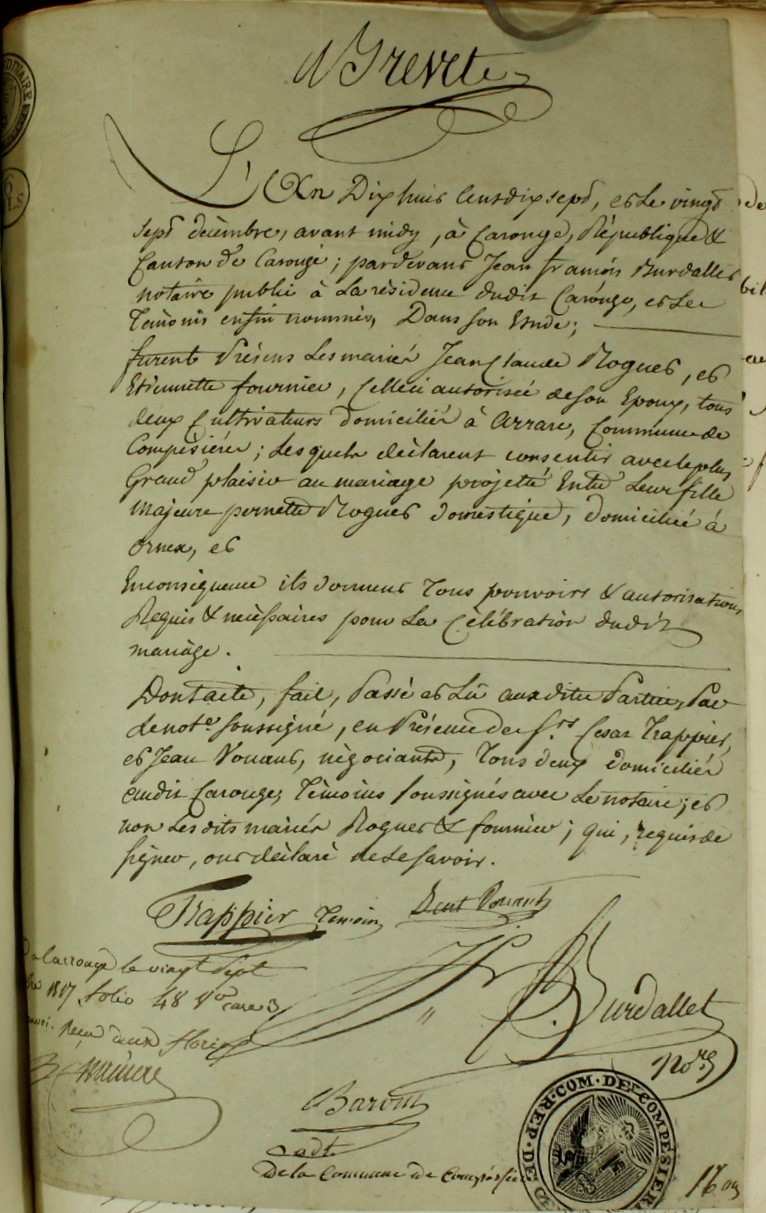 L'An Dix huit Cent dix sept, et Le vingt
sept decèmbre, avant midy, à Carouge, République &
Canton de Carouge; pardevant Jean françois Burdallet
notaire public à La rèsidence dudit Carouge, et Les
Tèmoins enfin nommés, Dans son Etude;
furent Présens Les mariés Jean Claude Rogues, et
Etiennette fournier, Celleci autorisée de son Epoux, tous
deux Cultivateurs domiciliés à Arrare, Commune de
Compèsières; Lesquels dèclarent consentir avec le plus
Grand plaisir au mariage projetté Entre Leur fille
majeure pernette Rogues domestique, domiciliée à
ornex, et
Enconséquence ils donnent Tous pouvoirs & autorisations
Requis & nècessaires pour La Cèlébration dudit
mariage.
Dont acte, fait, Passé et Lû auxdites Parties, Par
le not.e soussigné, en Présence de S.rs Cesar Trappier,
et Jean Vouant, nègociants, Tous deux domiciliés
audit Carouge, Tèmoins soussignés avec Le notaire; et
non Lesdits mariés Rogues & fournier; qui, requis de
signer, ont dèclaré ne le savoir.
Trappier Temoin Vouant
à Carrouge le vingt Sept
1817 folio 48 V.o case 3
Reçu deux florins
Burdallet
No.re
Baront
adt.
De la Commune de Compésières
REP. DE COM. DE COMPESIERE